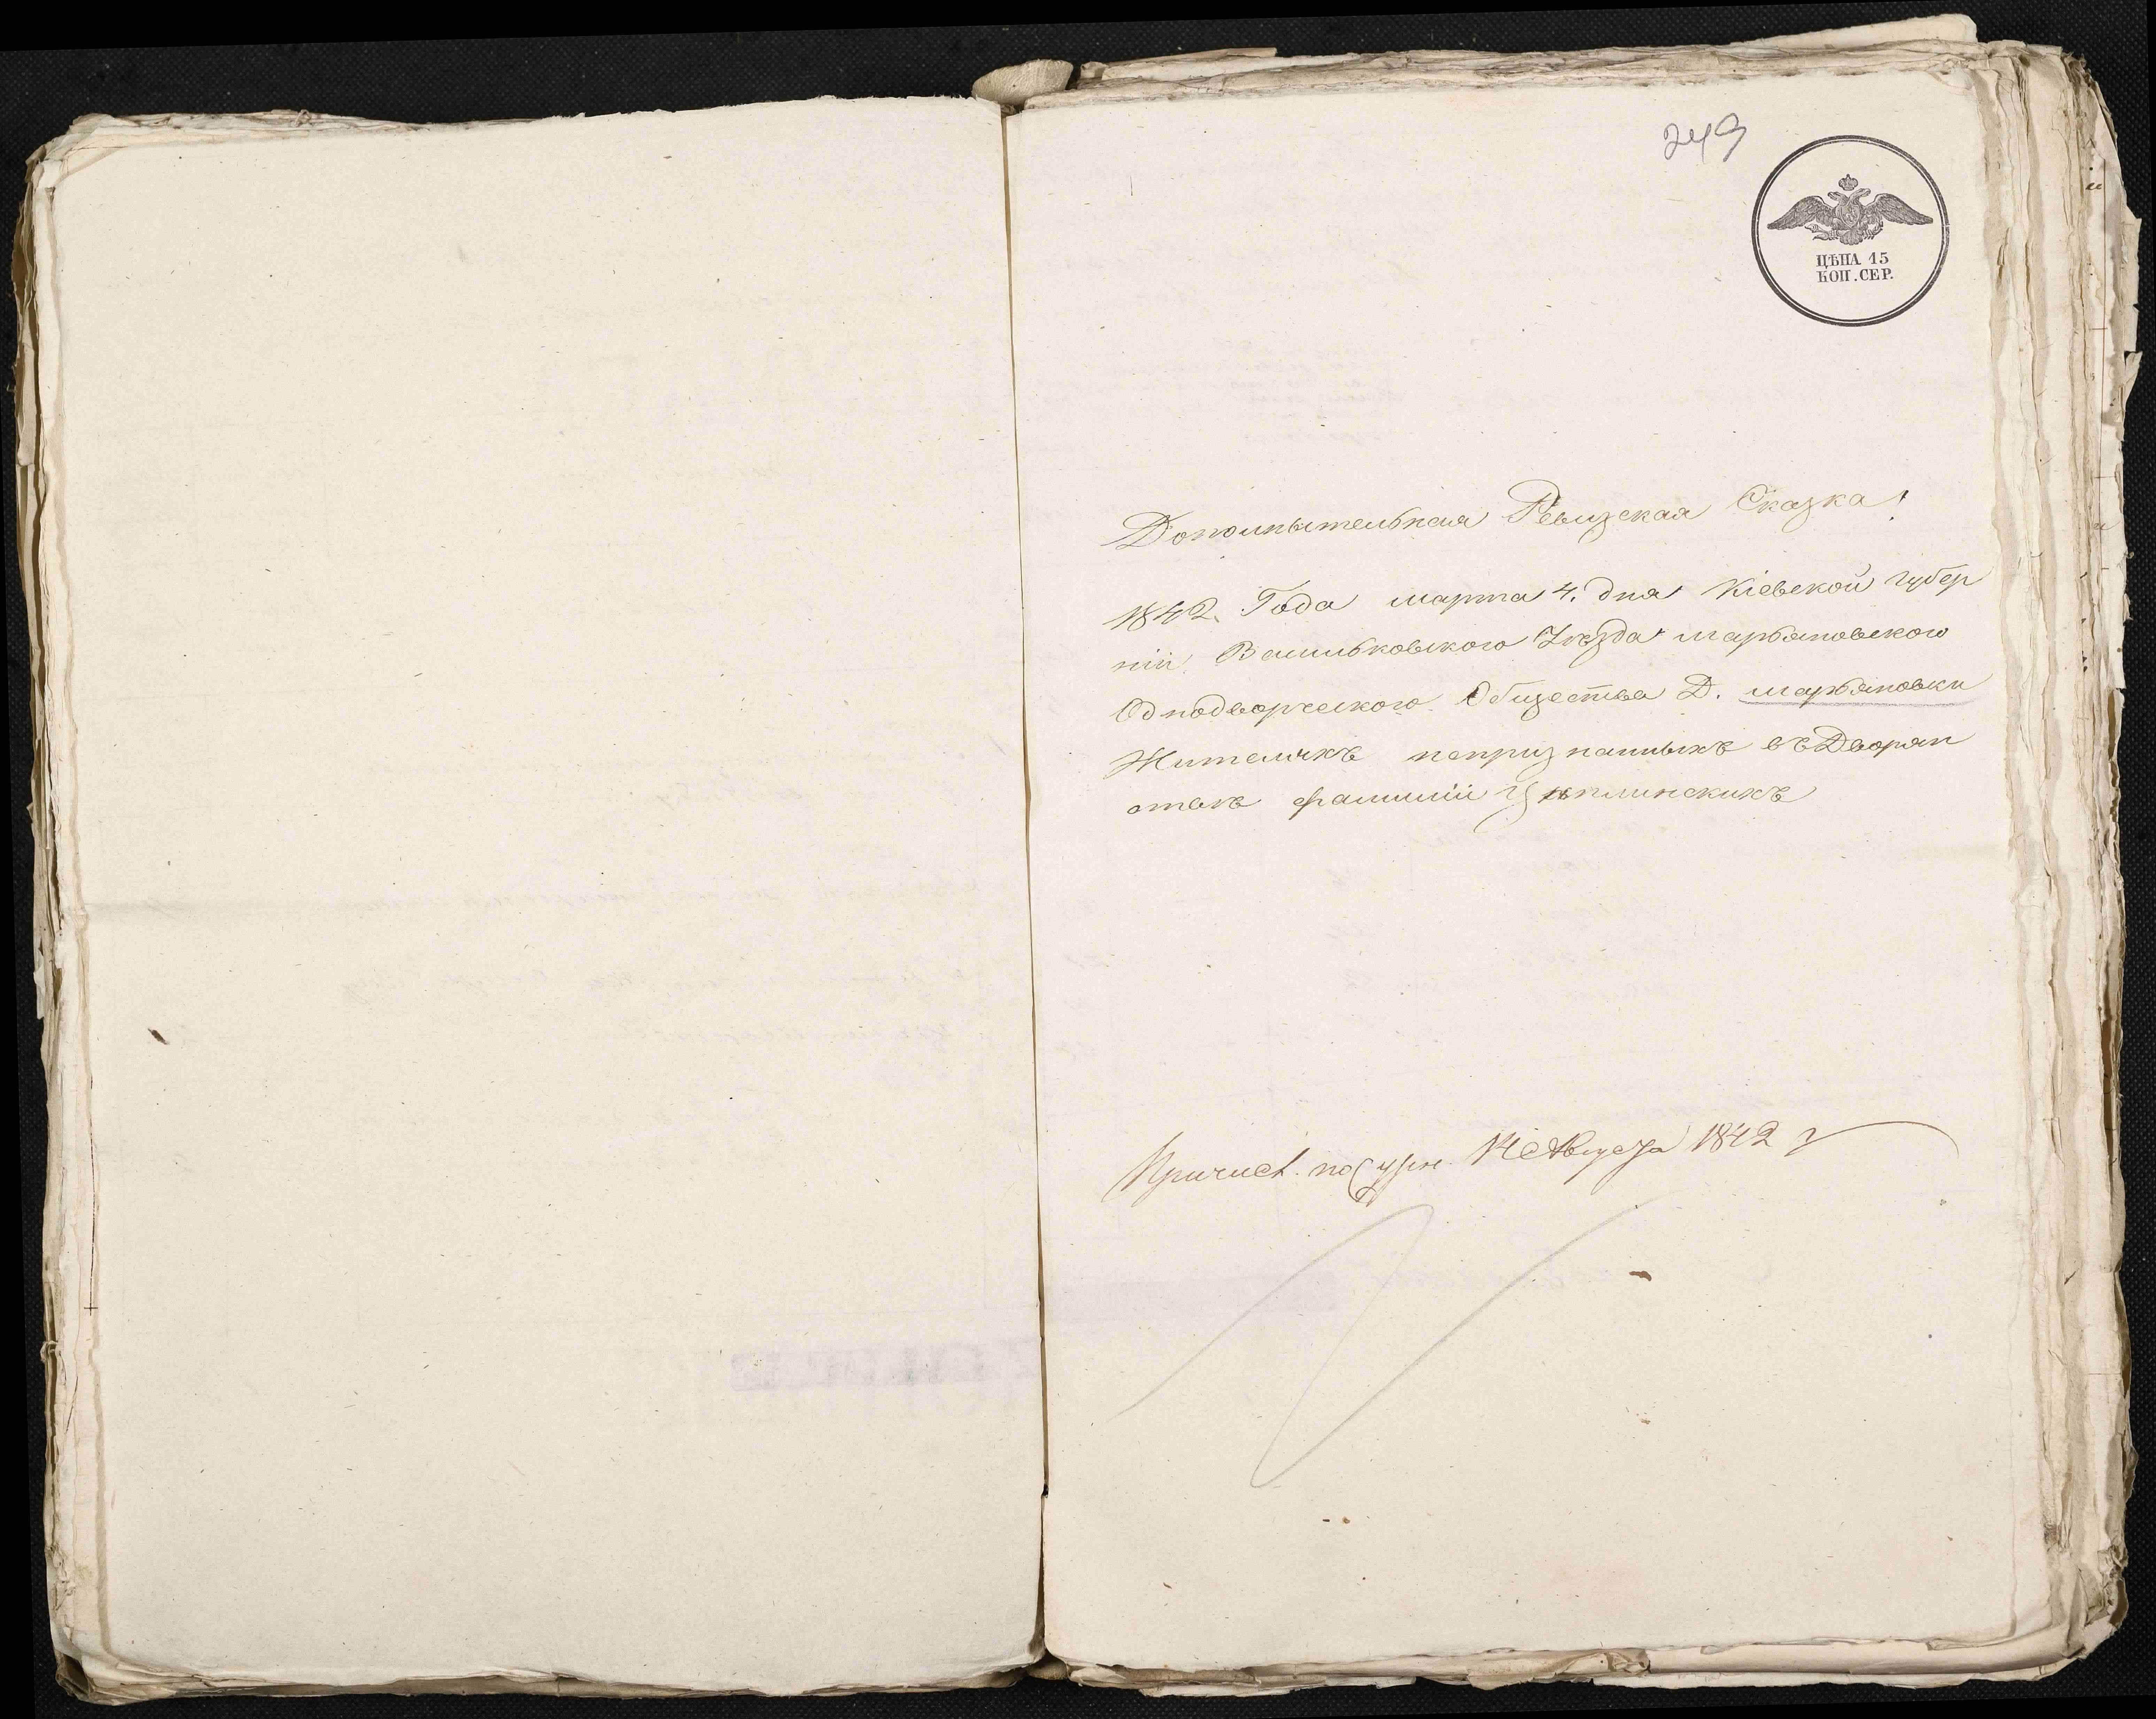 249
ЦѢНА 15
КОП. СЕР.
Дополнытельная Ревизская Сказка
1842. Года марта 4. дня Кіевской губер
ніи Васильковского Уѣзда марьяновского
Однодворческого Общества Д. марьяновки
Жителяхъ непризнанныхъ въ Дворян
ствѣ фамиліи Цыплинскихъ
Причисл. по журн. 14 Августа 1842 г